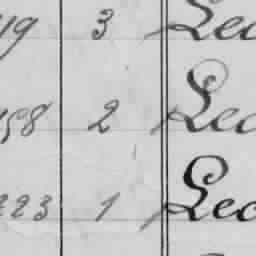 19 3 Leo
158 2 Leo
223 1 Leo